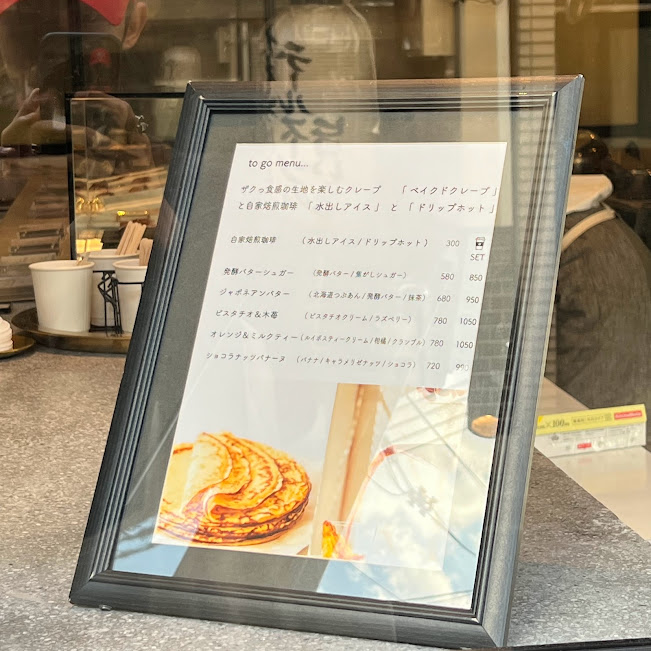 to go menu...
ザクっ食感の生地を楽しむクレープ 「ベイクドクレープ」
と自家焙煎珈琲 「水出しアイス」 と 「ドリップホット」
自家焙煎珈琲 (水出しアイス/ドリップホット) 300
SET
発酵バターシュガー (発酵バター/焦がしシュガー) 580 850
ジャポネアンバター (北海道つぶあん/発酵バター/抹茶) 680 950
ピスタチオ&木苺 (ピスタチオクリーム/ラズベリー) 780 1050
オレンジ&ミルクティー (ルイボスティークリーム/柑橘/クランブル) 780 1050
ショコラナッツバナーヌ (バナナ/キャラメリゼナッツ/ショコラ) 720